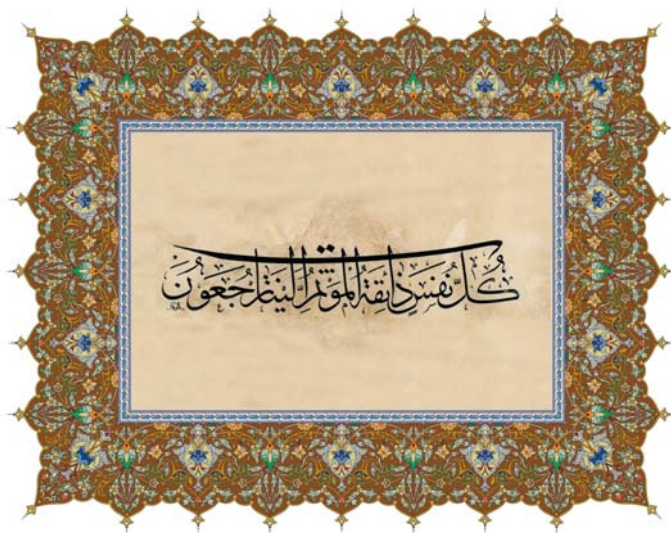 كُلُّ نَفْسٍ ذَائِقَةُ الْمَوْتِ ثُمَّ إِلَيْنَا تُرْجَعُونَ